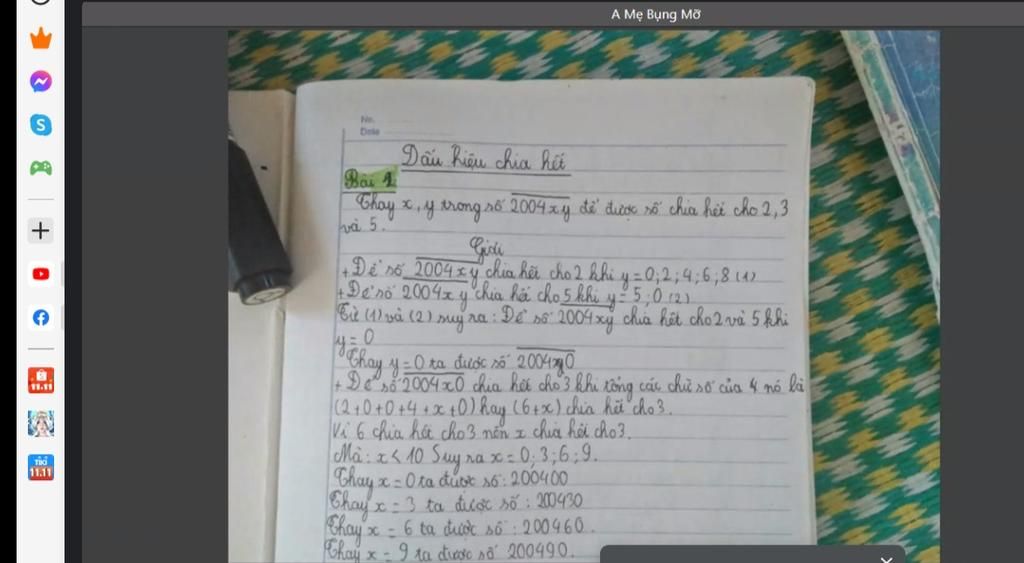 A Mẹ Bụng Mỡ
No.
Date
Dấu hiệu chia hết
Bài 1
Thay x, y trong số 2004xy để được số chia hết cho 2, 3
và 5.
Giải
+ Để số 2004xy chia hết cho 2 khi y = 0; 2; 4; 6; 8 (1)
+ Để số 2004xy chia hết cho 5 khi y = 5; 0 (2)
Từ (1) và (2) suy ra: Để số 2004xy chia hết cho 2 và 5 khi
y = 0
Thay y = 0 ta được số 2004x0
+ Để số 2004x0 chia hết cho 3 khi tổng các chữ số của 4 nó là
(2+0+0+4+x+0) hay (6+x) chia hết cho 3.
Vì 6 chia hết cho 3 nên x chia hết cho 3.
Mà: x < 10 Suy ra x = 0; 3; 6; 9.
Thay x = 0 ta được số: 200400
Thay x = 3 ta được số: 200430
Thay x = 6 ta được số: 200460.
Thay x = 9 ta được số 200490.
11.11
TIKI
11.11